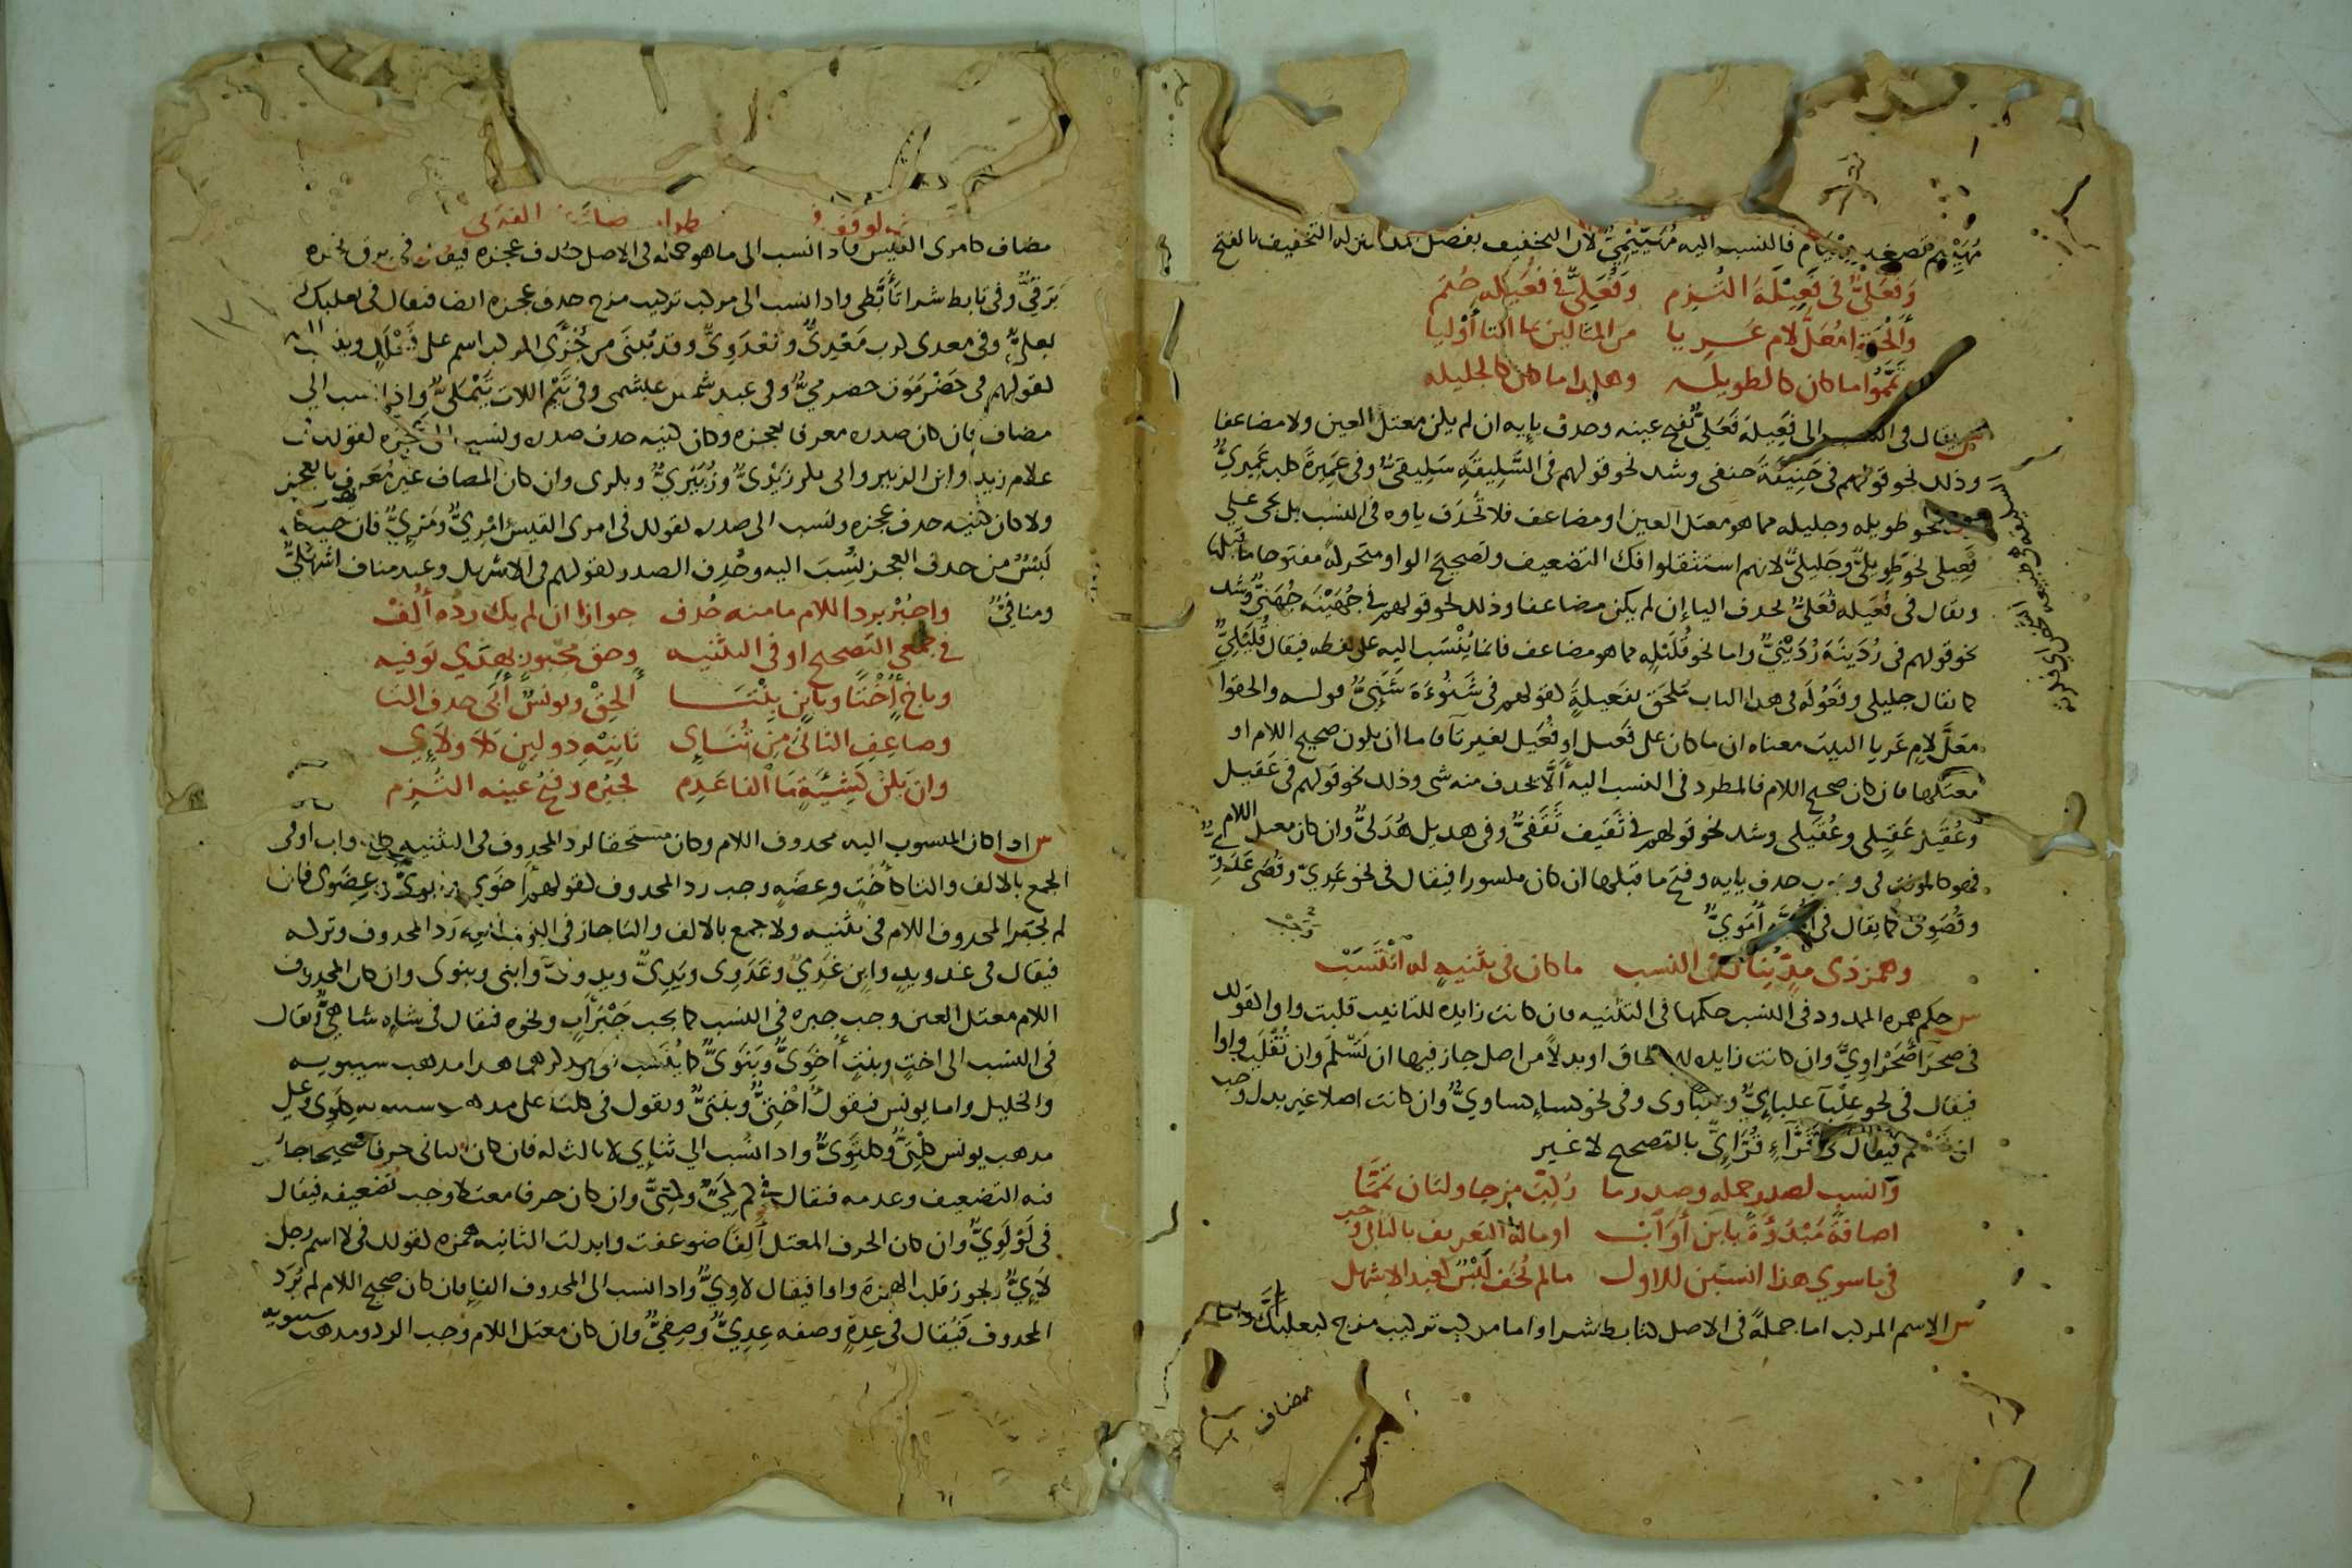 مُهَيِّيْم تصغير مهيام فالنسب اليه مُهَيِّيْمِيٌّ لان التخفيف بفصل له التخفيف بالفتح
وَفَعَلِيٌّ في فَعِيْلَةَ الْتُزِم وَفُعَلِيٌّ في فُعَيْلَه حُتِم
وَألْحَقوا مُعَلَّ لام عَرِيا من المثالين بما التا أُوْلِيا
وتَمَّمُوا ما كان كالطويله وهكذا ما كان كالجليله
ش يقال في النسب الى فَعِيلة فَعَلِيٌّ بفتح عينه وحذف يايه ان لم يكن معتل العين ولا مضاعفا
وذلك نحو قولهم في حَنِيفَةَ حنفى وشذ نحو قولهم في السَّلِيقَةِ سَلِيقيٌّ وفي عَمِيرةِ كلب عَمِيريٌّ
نحو طويله وجليله مما هو معتل العين او مضاعف فلا تُحذف ياوه في النسب بل يجى على
فَعِيلى نحو طَوِيلِيٌّ وجَلِيلِيٌّ لانهم استثقلوا فك التضعيف وتصحيح الواو متحركةً مفتوحا ما قبلها
ويقال في فُعَيله فُعَلِيٌّ بحذف اليا إن لم يكن مضاعفا وذلك نحو قولهم في جُهَيْنَه جُهَنِيٌّ وشذ
نحو قولهم في رُدَينَةَ رُدَيْنِيٌّ واما نحو قُلَيْلِه مما هو مضاعف فانما يُنْسَب اليه على لفظه فيقال قُلَيْلِيٌّ
كما يقال جليلى وفَعُولَه في هذا الباب مُلحَق بفَعيلةٍ لقولهم في شَنُوءَةَ شَنَئِيٌّ قوله والحقوا
معَلَّ لامٍ عَرِيا البيت معناه ان ما كان على فَعيل او فُعَيل بغير تآ فاما أن يكون صحيح اللام او
معتلها فان كان صحيح اللام فالمطرد في النسب اليه ألَّا يحذف منه شى وذلك نحو قولهم في عَقيل
وعُقَيل عَقِيلى وعُقَيلى وشذ نحو قولهم في ثَقيف ثَقَفيٌّ وفي هذيل هُذَلىٌّ وان كان معتل اللام
فهو كالمونث في وجوب حذف يايه وفتح ما قبلها ان كان مكسورا فيقال في نحو عَدِيّ وقُصَى عَدَوِيٌّ
وقُصَوِىٌّ كما يقال في أُمَيَّه أُمَوِيٌّ
وهمز ذى مدٍّ يُنال في النسب ما كان في تثنيةٍ له انْتَسَبْ
ش حكم همزه الممدود في النسب حكمها في التثنيه فان كانت زايده للتانيث قلبت واوا لقولك
في صحرَا صَحْرَاوِيٌّ وان كانت زايده للالحاق او بدلاً من اصل جاز فيها ان تَسْلَمَ وان تُقْلَبَ واوا
فيقال في نحو عِلْبَآ علبايِيٌّ وعلباوى وفي نحو كساءٍ كساويٌّ وان كانت اصلا غير بدل وجب
ان تسلم فيقال في قُرَّآءٍ قُرَّاءِىٌّ بالتصحيح لا غير
وانسب لصدر جمله وصدر ما رُكِّبَ مزجا ولثان تَمَّمَا
اضافةً مَبْدُوَّةً بابن أَوَ اَبْ او ماله التعريف بالثاني وجب
في ما سوي هذا انسبَن للاول ما لم يُخَف لَبْسٌ كعبد الاشهل
ش الاسم المركب اما جملةً في الاصل كتابط شرا واما مركب تركيب مزج كبعلبكَّ واما
مضاف
مضاف كامرى القيس فاذا نسب الى ما هو جمله في الاصل حُذف عجزه فيقال في برق نحره
بَرَقِيٌّ وفي تابط شرا تَأَبَّطى واذا نسب الى مركب تركيب مزج حذف عجزه ايضا فيقال في بعلبك
بعلىٌّ وفي معدى كرب مَعْدِىٌّ ومَعْدَوِىٌّ وقد يُبنَى من جُزْئَى المركب اسم على فَعْلَلٍ
لقولهم في حَضْرَمَوت حضرمىٌّ وفي عبد شمس عبشمى وفي تَيْم اللات تَيْمَلىٌّ واذا نسب الى
مضاف فان كان صدره معرفا بعجزه وكان كنيه حذف صدره ونسب الى عجزه لقولك في
غلام زيد وابن الزبير وابى بكر زَيْدىٌّ وزُبَيْرىٌّ وبكرى وان كان المضاف غير مُعَرف بالعجز
ولا كان كنيه حذف عجزه ونسب الى صدره لقولك في امرى القيس امْرِىٌّ ومَرَىٌّ فان خيف
لَبْسٌ من حذف العجز نُسِبَ اليه وحُذِف الصدر لقولهم في الاشهل وعبد مناف اشهَلىٌّ
ومنافىٌّ
واجْبُرْ برد اللام ما منه حُذف جوازا ان لم يك ردُّه أُلِفْ
في جمعى التصحيح او في التثنيه وحق مجبور بهذي توفيه
وباخٍ أُخْتًا وبابنٍ بِنْتَا اَلحِقْ ويونسٌ أَبَى حذف التا
وضاعِفِ الثانيَ مِن ثُنَاءِى ثانيْهِ ذو لينٍ كَلَا ولَاءِى
وان يكُنْ كَشِيَةٍ مَا الفا عَدِم فجَبْره وفتحُ عينه التُزِم
ش اذا كان المنسوب اليه محذوف اللام وكان مستحقا لرد المحذوف في التثنيه كاخ واب او في
الجمع بالالف والتا كأختٍ وعِضَةٍ وجب رد المحذوف لقولهم اَخَوِي وابويٌّ وعِضَوى فان
لم يجبر المحذوف اللام في تثنيه ولا جمع بالالف والتا جاز في النسب اليه رَدُّ المحذوف وتركه
فيقال في غد ويدٍ وابن غَدِيٌّ وغَدَوِى ويَدِىٌّ ويدوىٌّ وابنى وبنوى وان كان المحذوف
اللام معتل العين وجب جبره في النسب كما يجب جَبْر أبٍ ونحوه فيقال في شاه شاهىٌّ ويقال
في النسب الى اختٍ وبنتٍ أَخَوِىٌّ وبَنَوىٌّ كما يُنسَب الى مذكرهما هذا مذهب سيبويه
والخليل واما يونس فيقول أُختِىٌّ وبنتىٌّ وتقول في كلتا على مذهب سيبويه كِلَوى وعلى
مذهب يونس كِلْتِىٌّ وكلتَوِىٌّ واذا نُسب الي ثنايي لا ثالث له فان كان الثاني حرفا صحيحا جاز
فيه التضعيف وعدمه فيقال في كَم كَمىٌّ وكمّىٌّ وان كان حرفا معتلا وجب تضعيفه فيقال
في لَوْ لَوِّيٌّ وان كان الحرف المعتل أَلِفًا ضوعفت وابدلت الثانيه همزه لقولك في لا اسم رجل
لاَءِىٌّ ويجوز قلب الهمزة واوا فيقال لاوِىٌّ واذا نسب الى المحذوف الفاءِ فان كان صحيح اللام لم يُرَد
المحذوف فيُقال في عِدةٍ وصفه عِدِىٌّ وصِفىٌّ وان كان معتل اللام وجب الرد ومذهب سيبويه